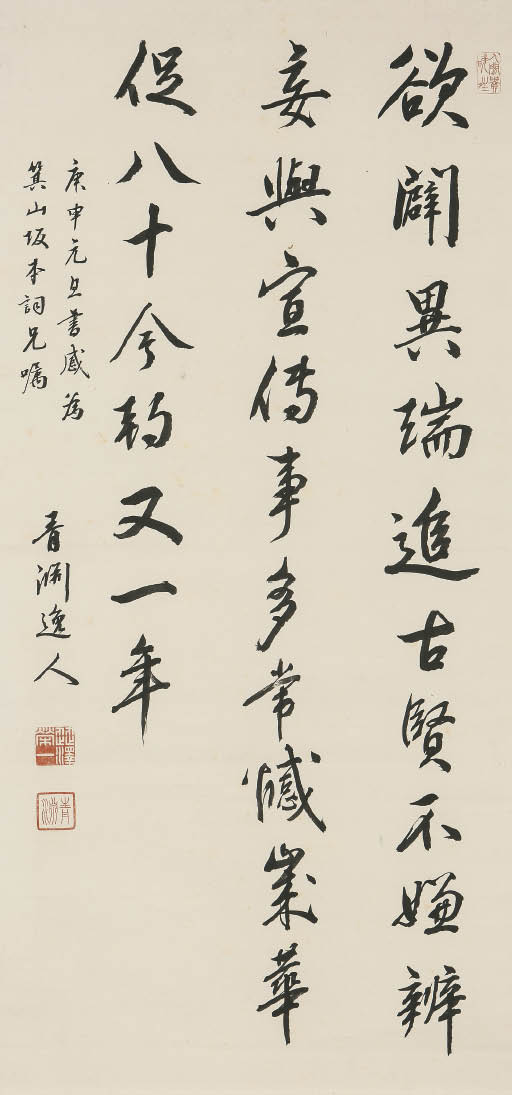 欲闢異端追古賢不嫌辨
妄與宣傳事多常憾歲華
促八十今朝又一年
庚申元旦書感為
箕山坂本詞兄嘱
青淵逸人
澁澤榮一
青淵